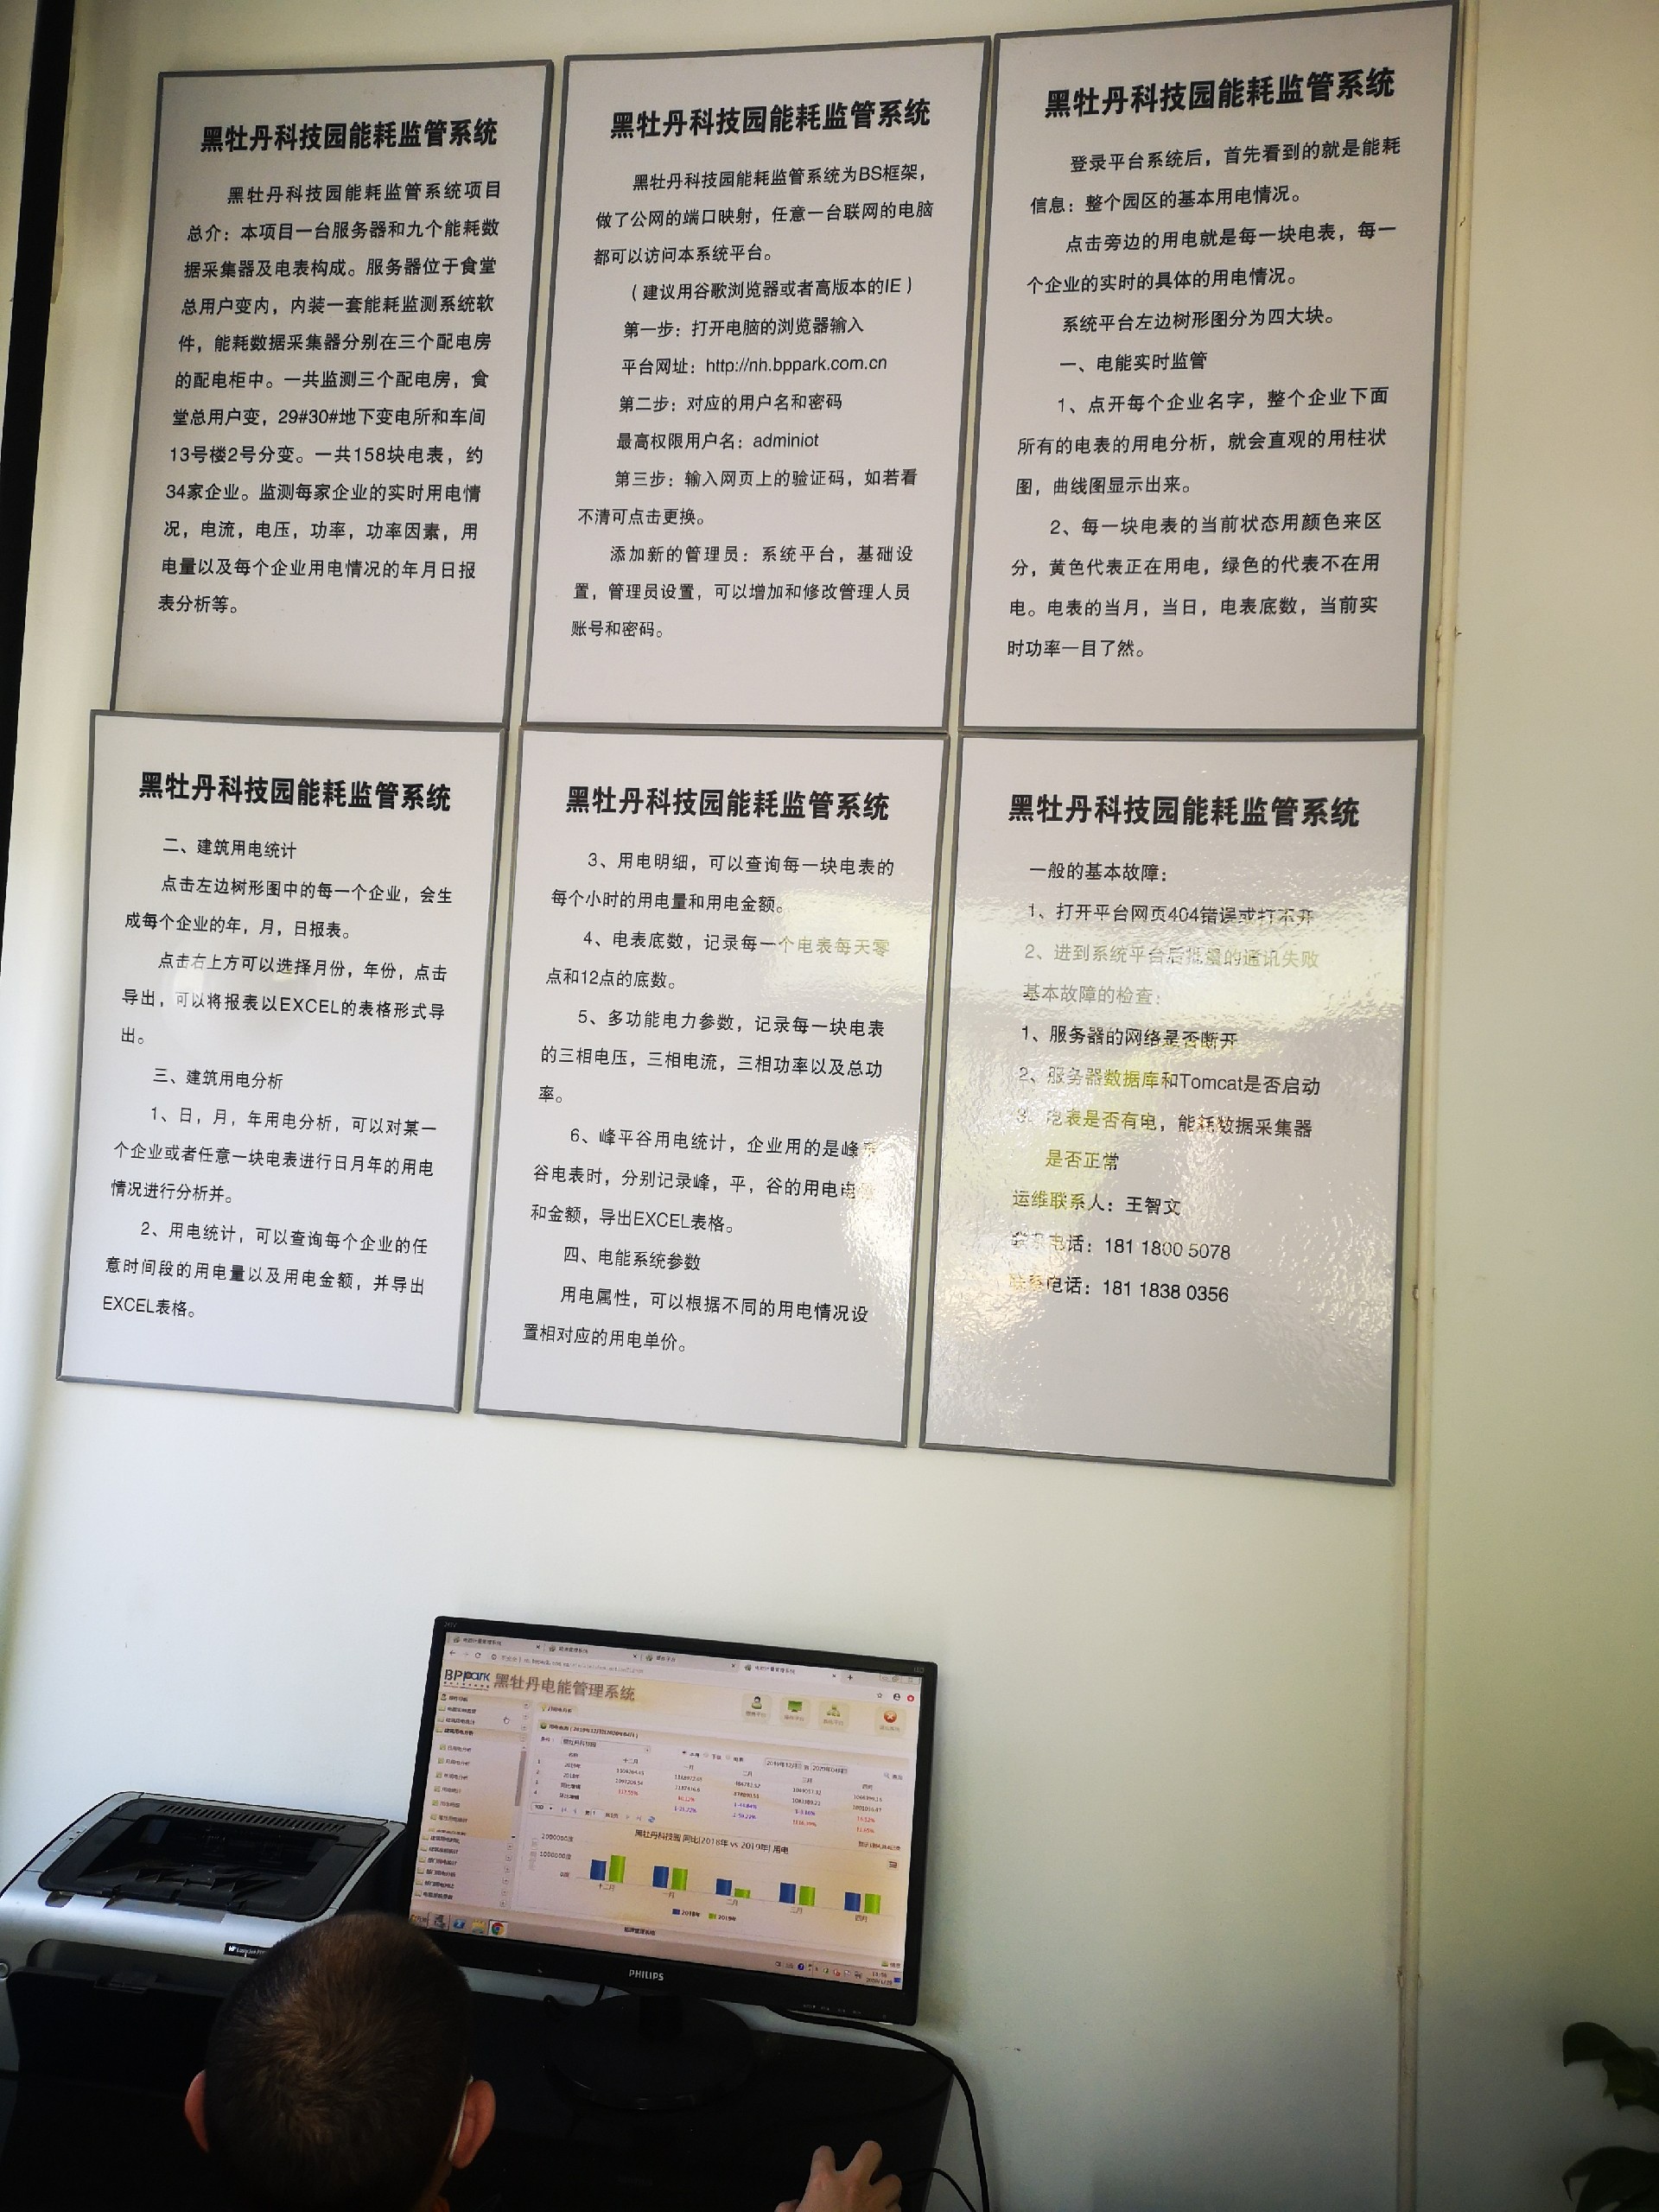 黑牡丹科技园能耗监管系统
黑牡丹科技园能耗监管系统项目
总介：本项目一台服务器和九个能耗数
据采集器及电表构成。服务器位于食堂
总用户变内，内装一套能耗监测系统软
件，能耗数据采集器分别在三个配电房
的配电柜中。一共监测三个配电房，食
堂总用户变，29#30#地下变电所和车间
13号楼2号分变。一共158块电表，约
34家企业。监测每家企业的实时用电情
况，电流，电压，功率，功率因素，用
电量以及每个企业用电情况的年月日报
表分析等。
黑牡丹科技园能耗监管系统
黑牡丹科技园能耗监管系统为BS框架，
做了公网的端口映射，任意一台联网的电脑
都可以访问本系统平台。
（建议用谷歌浏览器或者高版本的IE）
第一步：打开电脑的浏览器输入
平台网址：http://nh.bppark.com.cn
第二步：对应的用户名和密码
最高权限用户名：adminiot
第三步：输入网页上的验证码，如若看
不清可点击更换。
添加新的管理员：系统平台，基础设
置，管理员设置，可以增加和修改管理人员
账号和密码。
黑牡丹科技园能耗监管系统
登录平台系统后，首先看到的就是能耗
信息：整个园区的基本用电情况。
点击旁边的用电就是每一块电表，每一
个企业的实时的具体的用电情况。
系统平台左边树形图分为四大块。
一、电能实时监管
1、点开每个企业名字，整个企业下面
所有的电表的用电分析，就会直观的用柱状
图，曲线图显示出来。
2、每一块电表的当前状态用颜色来区
分，黄色代表正在用电，绿色的代表不在用
电。电表的当月，当日，电表底数，当前实
时功率一目了然。
黑牡丹科技园能耗监管系统
二、建筑用电统计
点击左边树形图中的每一个企业，会生
成每个企业的年，月，日报表。
点击右上方可以选择月份，年份，点击
导出，可以将报表以EXCEL的表格形式导
出。
三、建筑用电分析
1、日，月，年用电分析，可以对某一
个企业或者任意一块电表进行日月年的用电
情况进行分析并。
2、用电统计，可以查询每个企业的任
意时间段的用电量以及用电金额，并导出
EXCEL表格。
黑牡丹科技园能耗监管系统
3、用电明细，可以查询每一块电表的
每个小时的用电量和用电金额。
4、电表底数，记录每一个电表每天零
点和12点的底数。
5、多功能电力参数，记录每一块电表
的三相电压，三相电流，三相功率以及总功
率。
6、峰平谷用电统计，企业用的是峰平
谷电表时，分别记录峰，平，谷的用电电
和金额，导出EXCEL表格。
四、电能系统参数
用电属性，可以根据不同的用电情况设
置相对应的用电单价。
黑牡丹科技园能耗监管系统
一般的基本故障：
1、打开平台网页404错误或打不开
2、进到系统平台后批量的通讯失败
基本故障的检查：
1、服务器的网络是否断开
2、服务器数据库和Tomcat是否启动
3、电表是否有电，能耗数据采集器
是否正常
运维联系人：王智文
联系电话：181 1800 5078
联系电话：181 1838 0356
BPpark 黑牡丹电能管理系统
黑牡丹科技园 同比(2018年 vs 2019年)用电
十二月 一月 二月 三月 四月
2018年 2019年
PHILIPS